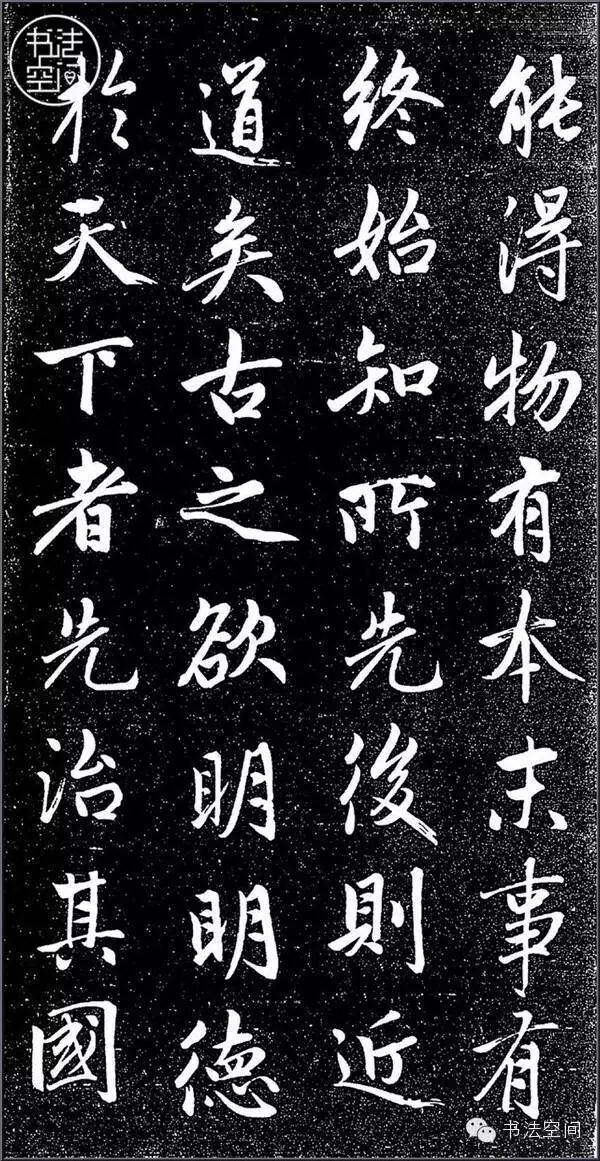 能得物有本末事有
終始知所先後則近
道矣古之欲明明德
於天下者先治其國
书法空间
书法空间